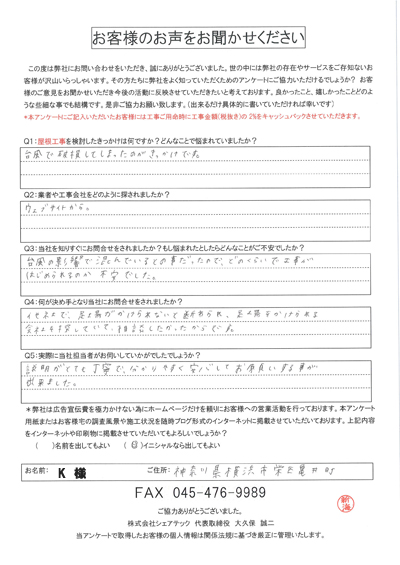 お客様のお声をお聞かせください
この度は弊社にお問い合わせをいただき、誠にありがとうございました。世の中には弊社の存在やサービスをご存知ないお
客様が沢山いらっしゃいます。その方たちに弊社をよく知っていただくためのアンケートにご協力いただけるでしょうか？ お客
様のご意見をお聞かせいただき今後の活動に反映させていきたいと考えております。良かったこと、嬉しかったことどのよ
うな些細な事でも結構です。是非ご協力お願い致します。（出来るだけ具体的に書いていただければ幸いです）
*本アンケートにご記入いただいたお客様には工事ご用命時に工事金額(税抜き)の2%をキャッシュバックさせていただきます。
Q1:屋根工事を検討したきっかけは何ですか？どんなことで悩まれていましたか？
台風で破損してしまったのがきっかけです。
Q2:業者や工事会社をどのように探されましたか？
ウェブサイトから。
Q3:当社を知りすぐにお問合せをされましたか？もし悩まれたとしたらどんなことがご不安でしたか？
台風の影響で混んでいるとの事だったので、どのくらいで工事が
はじめられるのか 不安でした。
Q4:何が決め手となり当社にお問合せをされましたか？
足場がかけられないと断られ、足場をかけられる
会社を探していて、相談したかったからです。
Q5:実際に当社担当者がお伺いしていかがでしたでしょうか？
説明がとても丁寧で、わかりやすく安心してお願いする事が
出来ました。
＊弊社は広告宣伝費を極力かけない為にホームページだけを頼りにお客様への営業活動を行っております。本アンケート
用紙またはお客様宅の調査風景や施工状況を随時ブログ形式のインターネットに掲載させていただいております。上記内容
をインターネットや印刷物に掲載させていただいてもよろしいでしょうか？
（　）名前を出してもよい　（○）イニシャルなら出してもよい
お名前： K 様 ご住所： 神奈川県横浜市栄区亀井町
FAX 045-476-9989
ご協力ありがとうございました。
株式会社シェアテック 代表取締役 大久保 誠二
当アンケートで取得したお客様の個人情報は関係法規に基づき厳正に管理いたします。